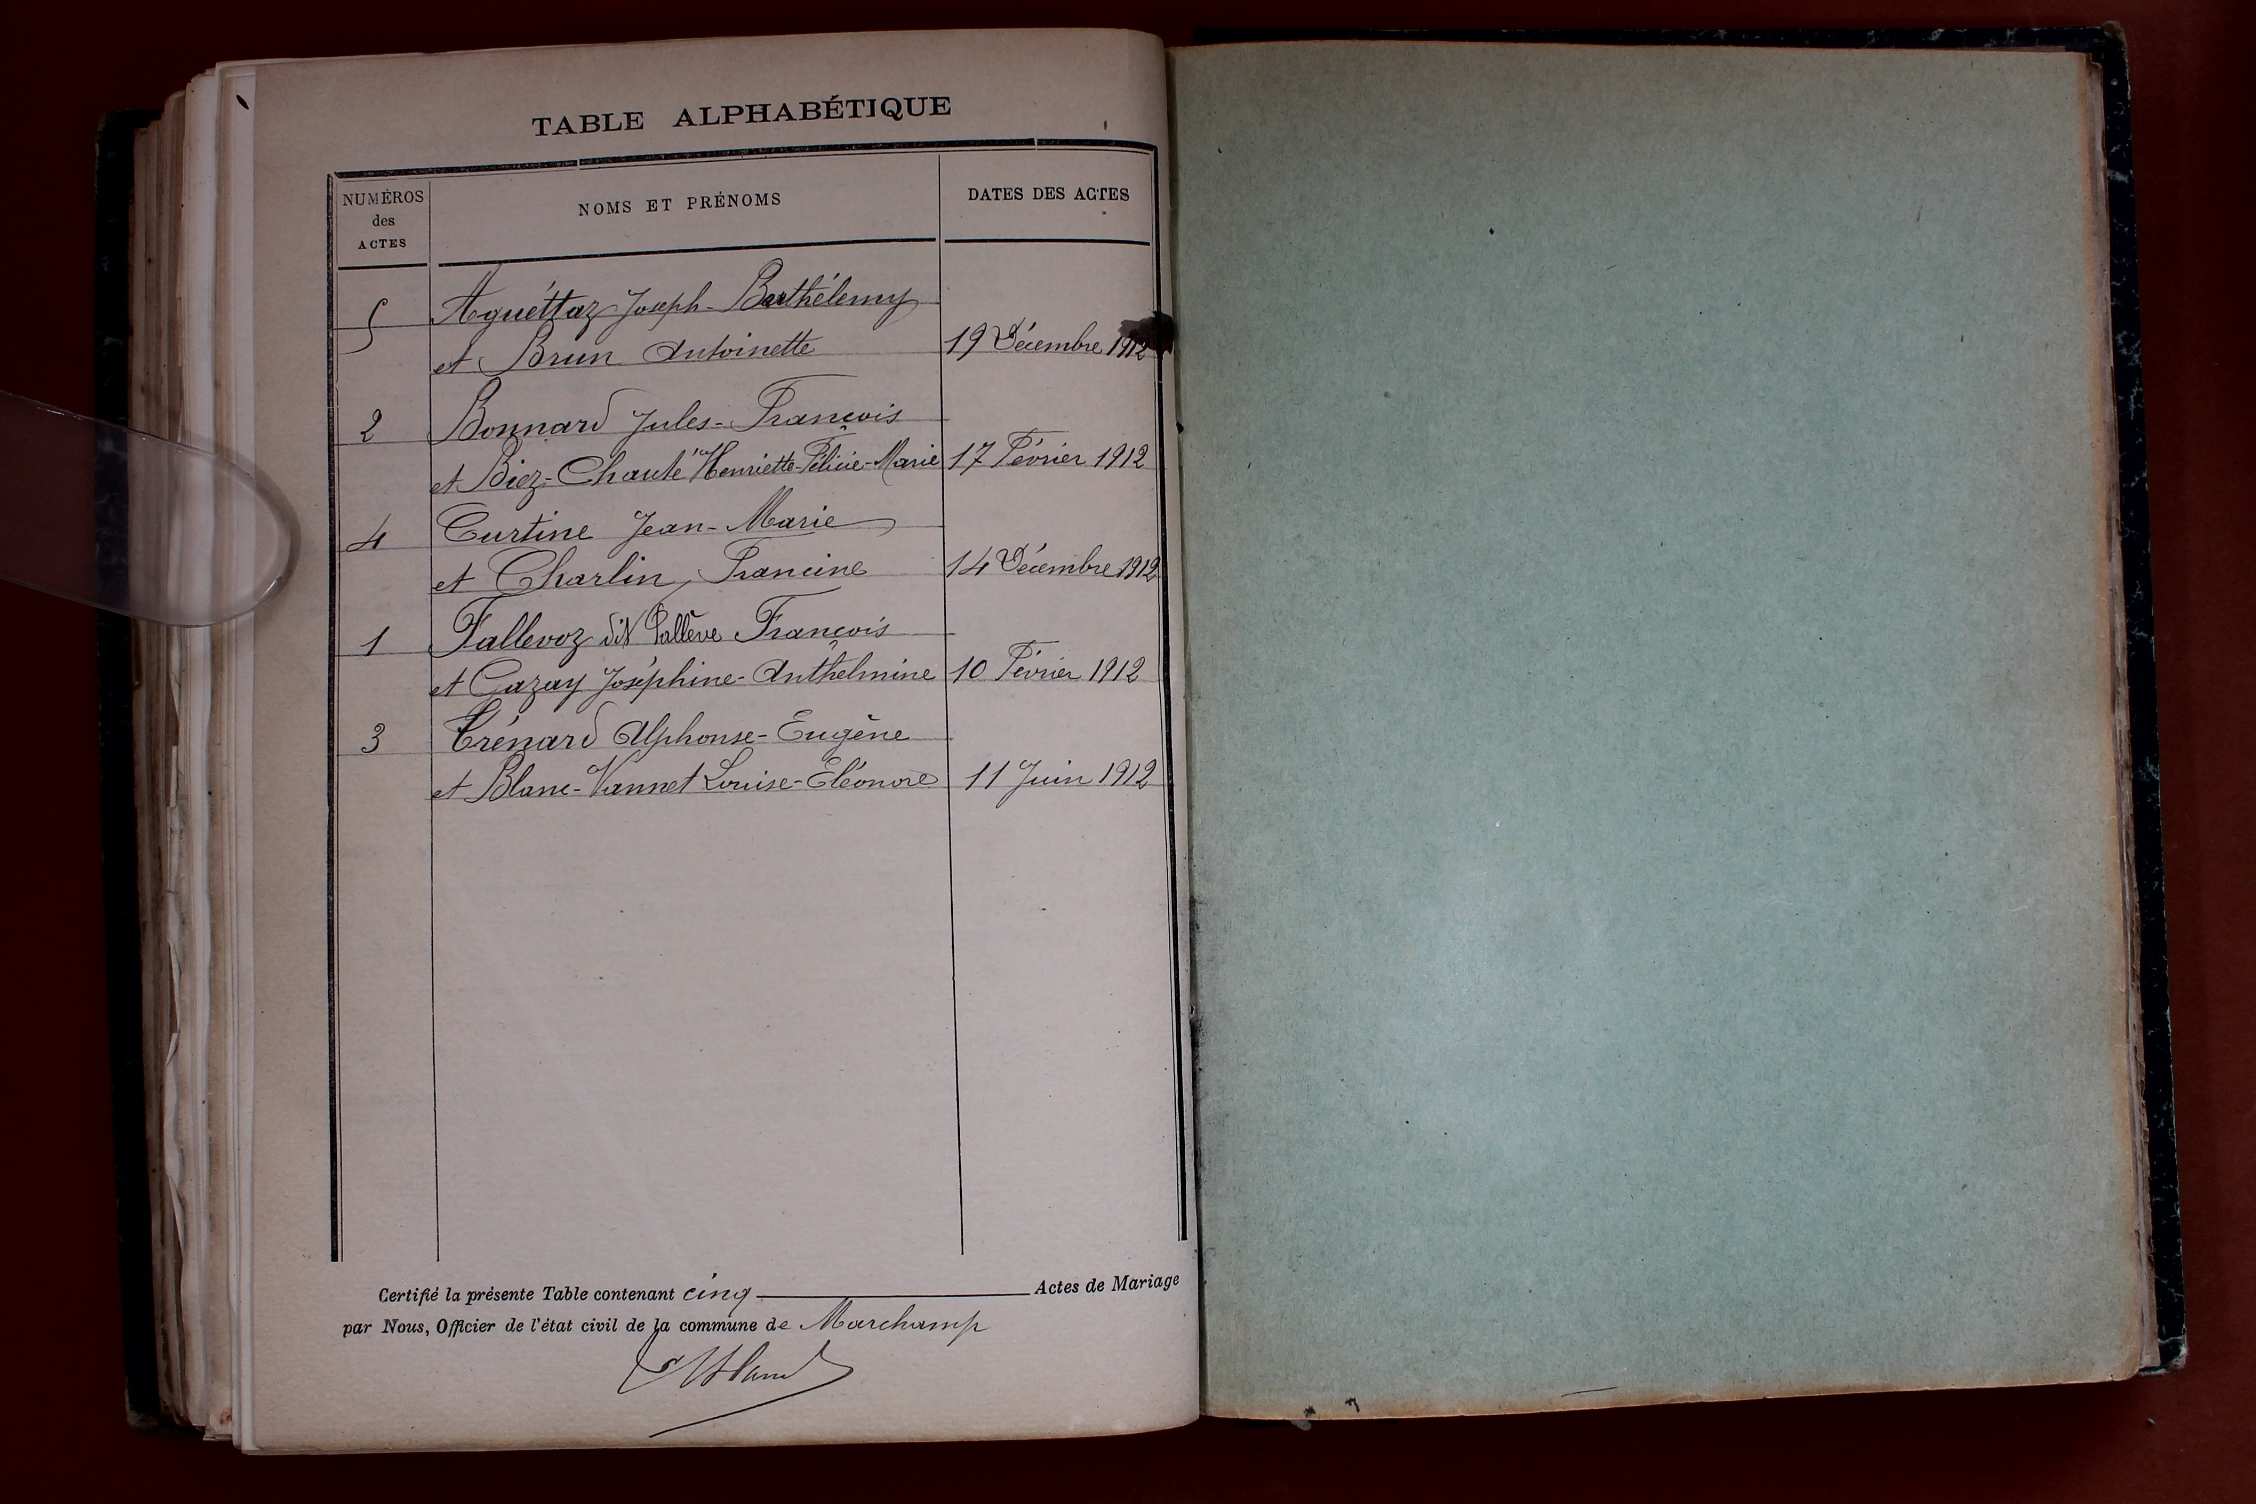 TABLE ALPHABÉTIQUE
NUMÉROS des ACTES NOMS ET PRÉNOMS DATES DES ACTES
5 Aguéttaz Joseph-Barthélemy
et Brun Antoinette 19 Décembre 1912
2 Bonnard Jules-François
et Biez-Chauté Henriette-Félicie-Marie 17 Février 1912
4 Curtine Jean-Marie
et Charlin, Francine 14 Décembre 1912
1 Fallevoz dit Fallève François
et Cazay Joséphine-Anthelmine 10 Février 1912
3 Trénard Alphonse-Eugène
et Blanc-Vannet Louise-Eléonore 11 Juin 1912
Certifié la présente Table contenant cinq Actes de Mariage
par Nous, Officier de l'état civil de la commune de Marchamp